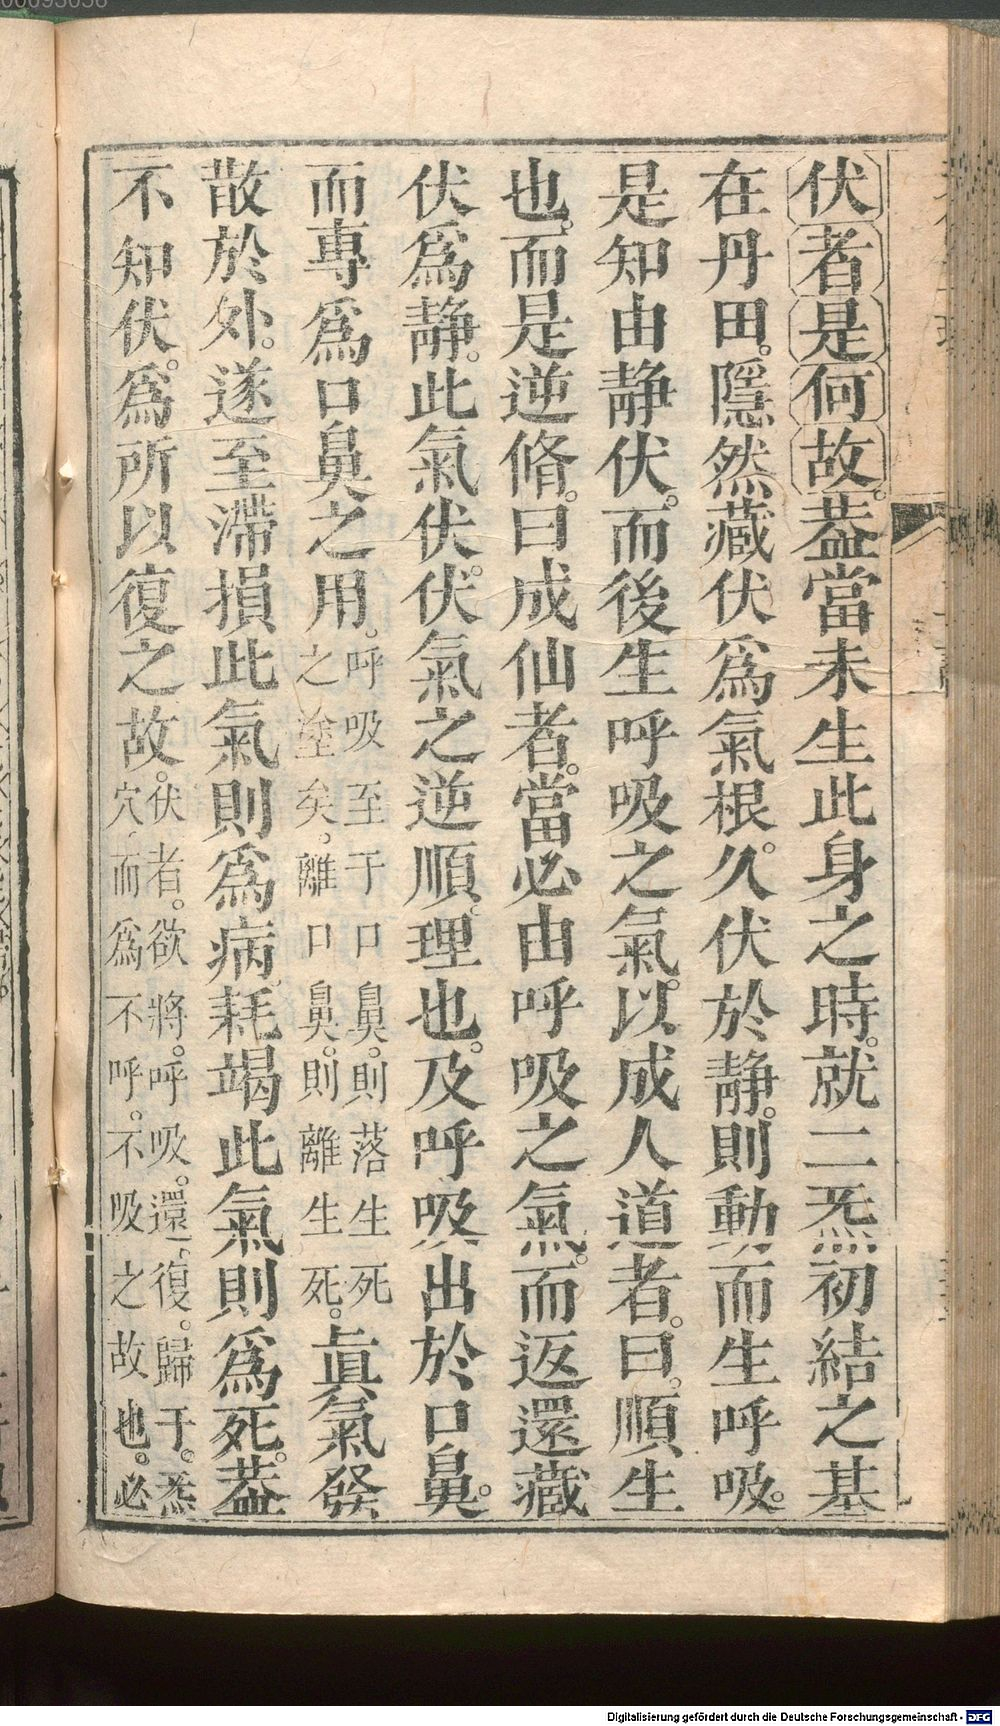 伏者是何故。葢當未生此身之時。就二炁初結之基
在丹田。隱然藏伏爲氣根。久伏於静。則動而生呼吸。
是知由静伏。而後生呼吸之氣。以成人道者。曰。順生
也。而是逆脩。曰成仙者。當必由呼吸之氣。而返還藏
伏爲静。此氣伏。伏氣之逆順。理也。及呼吸出於口鼻。
而專爲口鼻之用。
呼吸至于口鼻。則落生死
之塗矣。離口鼻。則離生死。
眞氣發
散於外。遂至滯損此氣則爲病。耗竭此氣則爲死。葢
不知伏。爲所以復之故。
伏者。欲將。呼吸。還復。歸于。炁
穴。而爲不呼。不吸之故也。必
00093036
Digitalisierung gefördert durch die Deutsche Forschungsgemeinschaft - DFG